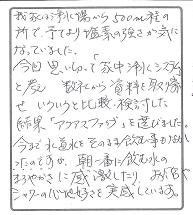 我家は浄水場から500m程の
所で、予てより塩素の強さが気に
なっていました。
今回 思い切って「家中浄水システム」
を考え 数社から資料を取寄
せ いろいろと比較・検討した
結果「アクアスファップ」を選びました。
今まで水道水をそのまま飲む事もなか
ったのですが、朝一番に飲む水の
まろやかさに感激したり お風呂や
シャワーの心地好さを実感しています。